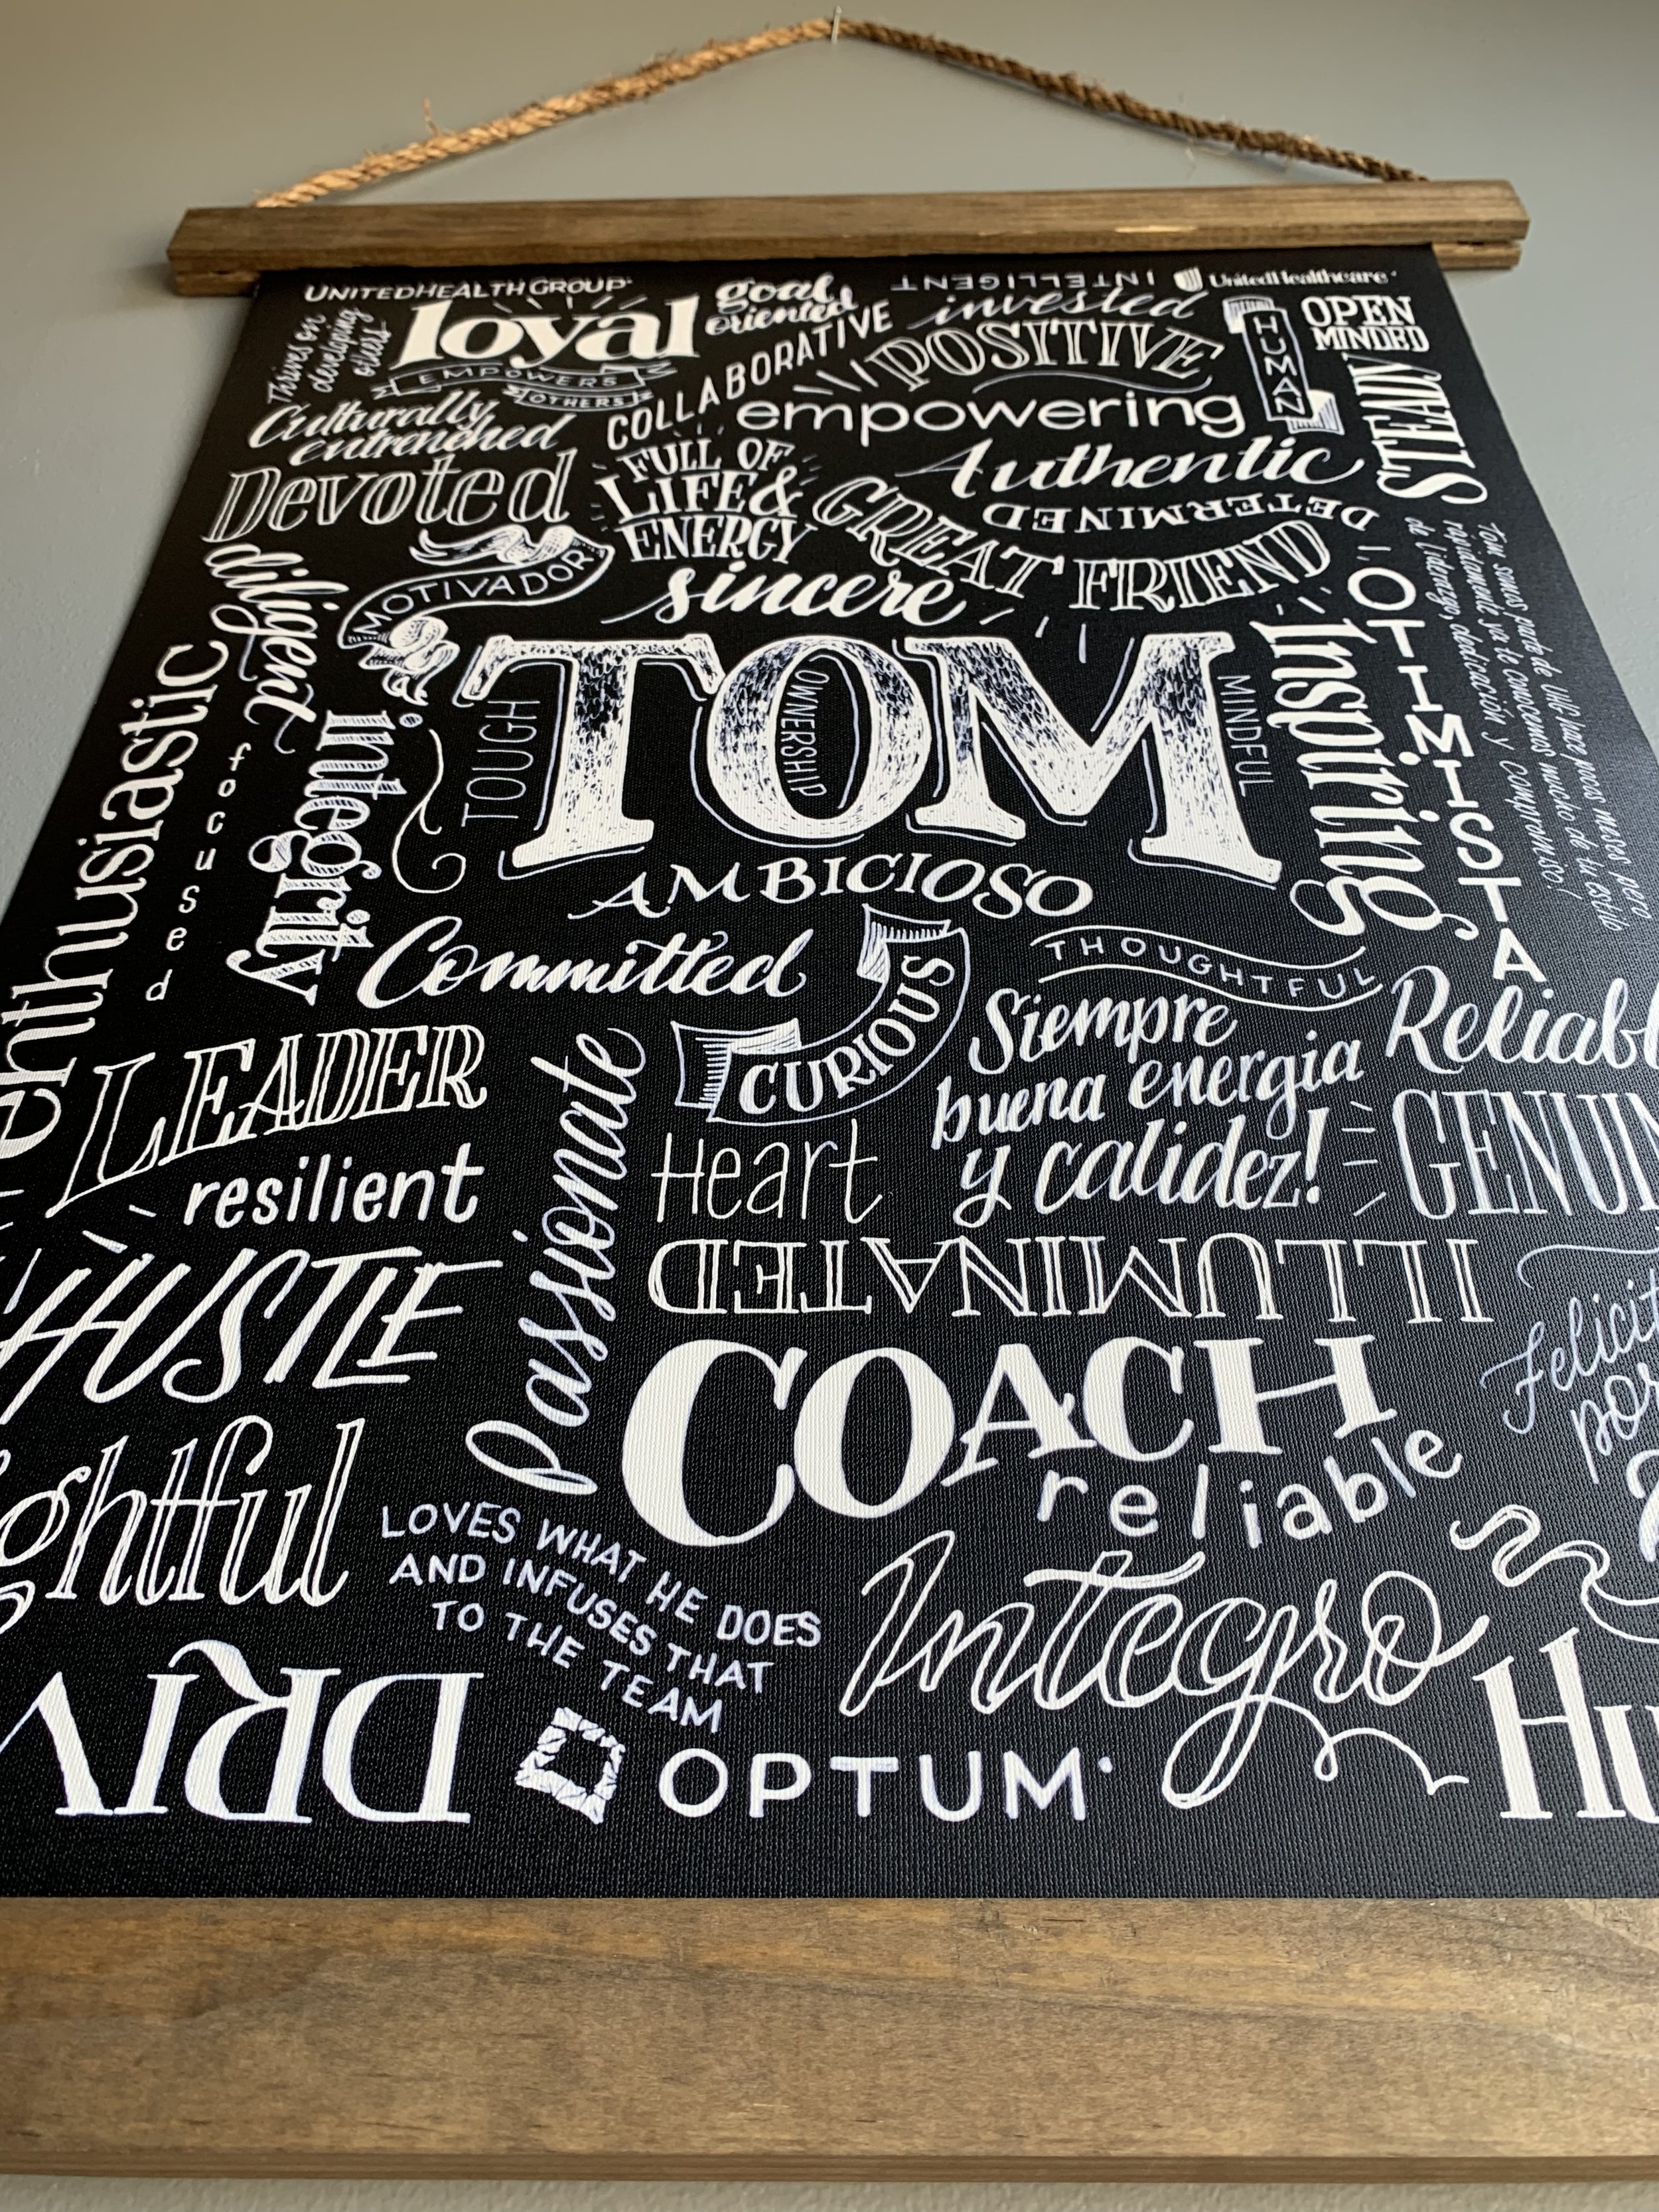 UNITEDHEALTH GROUP
goal
oriented
INTELLIGENT
UnitedHealthcare
Thrives on
developing
others
loyal
EMPOWERS
OTHERS
COLLABORATIVE
invested
POSITIVE
HUMAN
OPEN
MINDED
STEADY
Culturally
entrenched
empowering
Devoted
FULL OF
LIFE &
ENERGY
Authentic
DETERMINED
GREAT FRIEND
MOTIVADOR
sincere
diligent
enthusiastic
focused
integrity
TOUGH
TOM
OWNERSHIP
MINDFUL
Inspiring
OTIMISTA
Tom somos parte de UHG hace pocos meses pero
rapidamente ya te conocemos mucho de tu estilo
de liderazgo, dedicación y compromiso!
AMBICIOSO
Committed
CURIOUS
THOUGHTFUL
LEADER
Siempre
buena energia
y calidez!
Reliabl
GENUIN
resilient
Passionate
Heart
ILLUMINATED
HUSTLE
COACH
reliable
Felicit
por
ghtful
LOVES WHAT HE DOES
AND INFUSES THAT
TO THE TEAM
Integro
DRIV
OPTUM
Hu